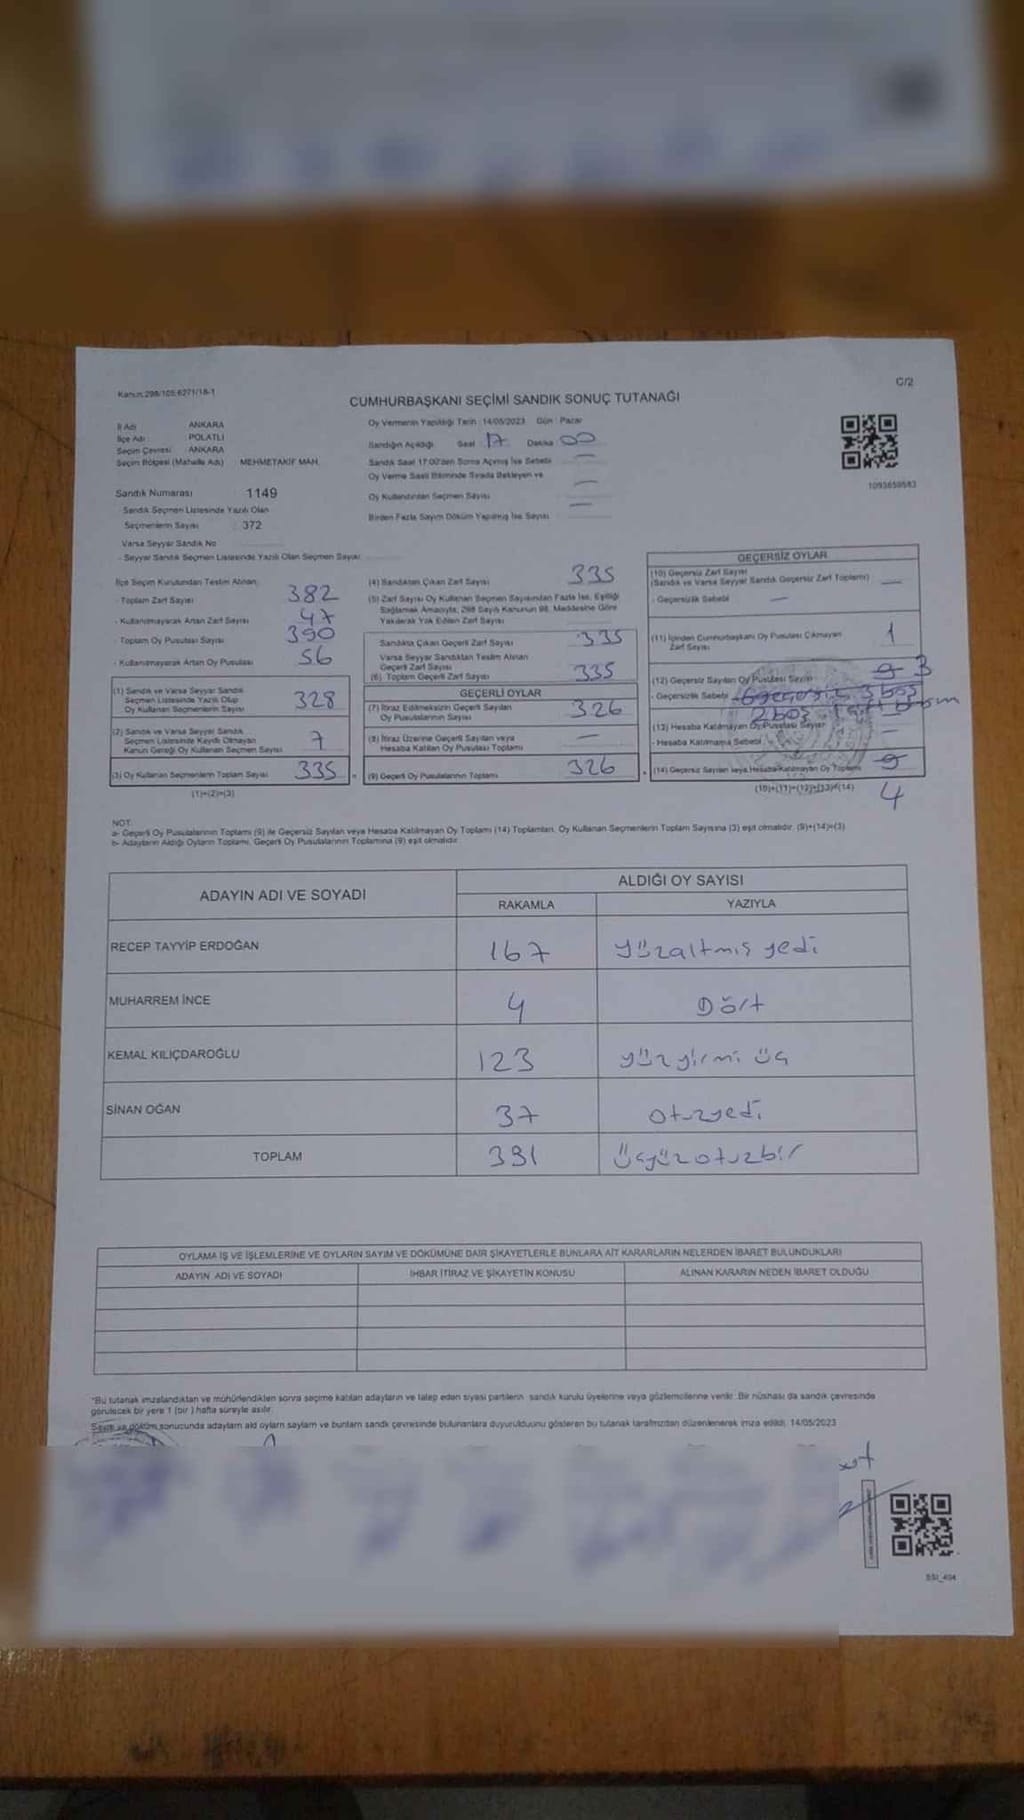 Kanun.298/105:6271/18-1
C/2
CUMHURBAŞKANI SEÇİMİ SANDIK SONUÇ TUTANAĞI
İl Adı ANKARA
İlçe Adı POLATLI
Seçim Çevresi ANKARA
Seçim Bölgesi (Mahalle Adı) MEHMETAKİF MAH.
Oy Vermenin Yapıldığı Tarih : 14/05/2023 Gün : Pazar
Sandığın Açıldığı Saat 17 Dakika 00
Sandık Saat 17:00'den Sonra Açılmış İse Sebebi —
Oy Verme Saati Bitiminde Sırada Bekleyen ve
Oy Kullandırılan Seçmen Sayısı —
Birden Fazla Sayım Döküm Yapılmış İse Sayısı —
1093659583
Sandık Numarası 1149
Sandık Seçmen Listesinde Yazılı Olan
Seçmenlerin Sayısı 372
Varsa Seyyar Sandık No
- Seyyar Sandık Seçmen Listesinde Yazılı Olan Seçmen Sayısı
İlçe Seçim Kurulundan Teslim Alınan;
- Toplam Zarf Sayısı 382
- Kullanılmayarak Artan Zarf Sayısı 47
- Toplam Oy Pusulası Sayısı 390
- Kullanılmayarak Artan Oy Pusulası 56
(1) Sandık ve Varsa Seyyar Sandık
Seçmen Listesinde Yazılı Olup
Oy Kullanan Seçmenlerin Sayısı 328
(2) Sandık ve Varsa Seyyar Sandık
Seçmen Listesinde Kayıtlı Olmayan
Kanun Gereği Oy Kullanan Seçmen Sayısı 7
(3) Oy Kullanan Seçmenlerin Toplam Sayısı 335
(1)+(2)=(3)
(4) Sandıktan Çıkan Zarf Sayısı 335
(5) Zarf Sayısı Oy Kullanan Seçmen Sayısından Fazla İse, Eşitliği
Sağlamak Amacıyla, 298 Sayılı Kanunun 98. Maddesine Göre
Yakılarak Yok Edilen Zarf Sayısı
Sandıkta Çıkan Geçerli Zarf Sayısı 335
Varsa Seyyar Sandıktan Teslim Alınan
Geçerli Zarf Sayısı
(6) Toplam Geçerli Zarf Sayısı 335
GEÇERLİ OYLAR
(7) İtiraz Edilmeksizin Geçerli Sayılan
Oy Pusulasının Sayısı 326
(8) İtiraz Üzerine Geçerli Sayılan veya
Hesaba Katılan Oy Pusulası Toplamı —
(9) Geçerli Oy Pusulalarının Toplamı 326
GEÇERSİZ OYLAR
(10) Geçersiz Zarf Sayısı
(Sandık ve Varsa Seyyar Sandık Geçersiz Zarf Toplamı) —
- Geçersizlik Sebebi —
(11) İçinden Cumhurbaşkanı Oy Pusulası Çıkmayan
Zarf Sayısı 1
(12) Geçersiz Sayılan Oy Pusulası Sayısı 9 3
- Geçersizlik Sebebi 6 geçersiz 3 boş
2 boş
(13) Hesaba Katılmayan Oy Pusulası Sayısı —
- Hesaba Katılmama Sebebi
(14) Geçersiz Sayılan veya Hesaba Katılmayan Oy Toplamı 9
(10)+(11)+(12)+(13)=(14) 4
NOT:
a- Geçerli Oy Pusulalarının Toplamı (9) ile Geçersiz Sayılan veya Hesaba Katılmayan Oy Toplamı (14) Toplamları, Oy Kullanan Seçmenlerin Toplam Sayısına (3) eşit olmalıdır. (9)+(14)=(3)
b- Adayların Aldığı Oyların Toplamı, Geçerli Oy Pusulalarının Toplamına (9) eşit olmalıdır.
ADAYIN ADI VE SOYADI
ALDIĞI OY SAYISI
RAKAMLA YAZIYLA
RECEP TAYYİP ERDOĞAN 167 yüzaltmış yedi
MUHARREM İNCE 4 Dört
KEMAL KILIÇDAROĞLU 123 yüz yirmi üç
SİNAN OĞAN 37 otuzyedi
TOPLAM 331 üçyüzotuzbir
OYLAMA İŞ VE İŞLEMLERİNE VE OYLARIN SAYIM VE DÖKÜMÜNE DAİR ŞİKAYETLERLE BUNLARA AİT KARARLARIN NELERDEN İBARET BULUNDUKLARI
ADAYIN ADI VE SOYADI İHBAR İTİRAZ VE ŞİKAYETİN KONUSU ALINAN KARARIN NEDEN İBARET OLDUĞU
*Bu tutanak imzalandıktan ve mühürlendikten sonra seçime katılan adayların ve talep eden siyasi partilerin sandık kurulu üyelerine veya gözlemcilerine verilir. Bir nüshası da sandık çevresinde
görülecek bir yere 1 (bir ) hafta süreyle asılır.
Sayım ve döküm sonucunda adayların aldı oyların sayılam ve bunların sandık çevresinde bulunanlara duyurulduunu gösteren bu tutanak tarafımızdan düzenlenerek imza edildi. 14/05/2023
SSI_404